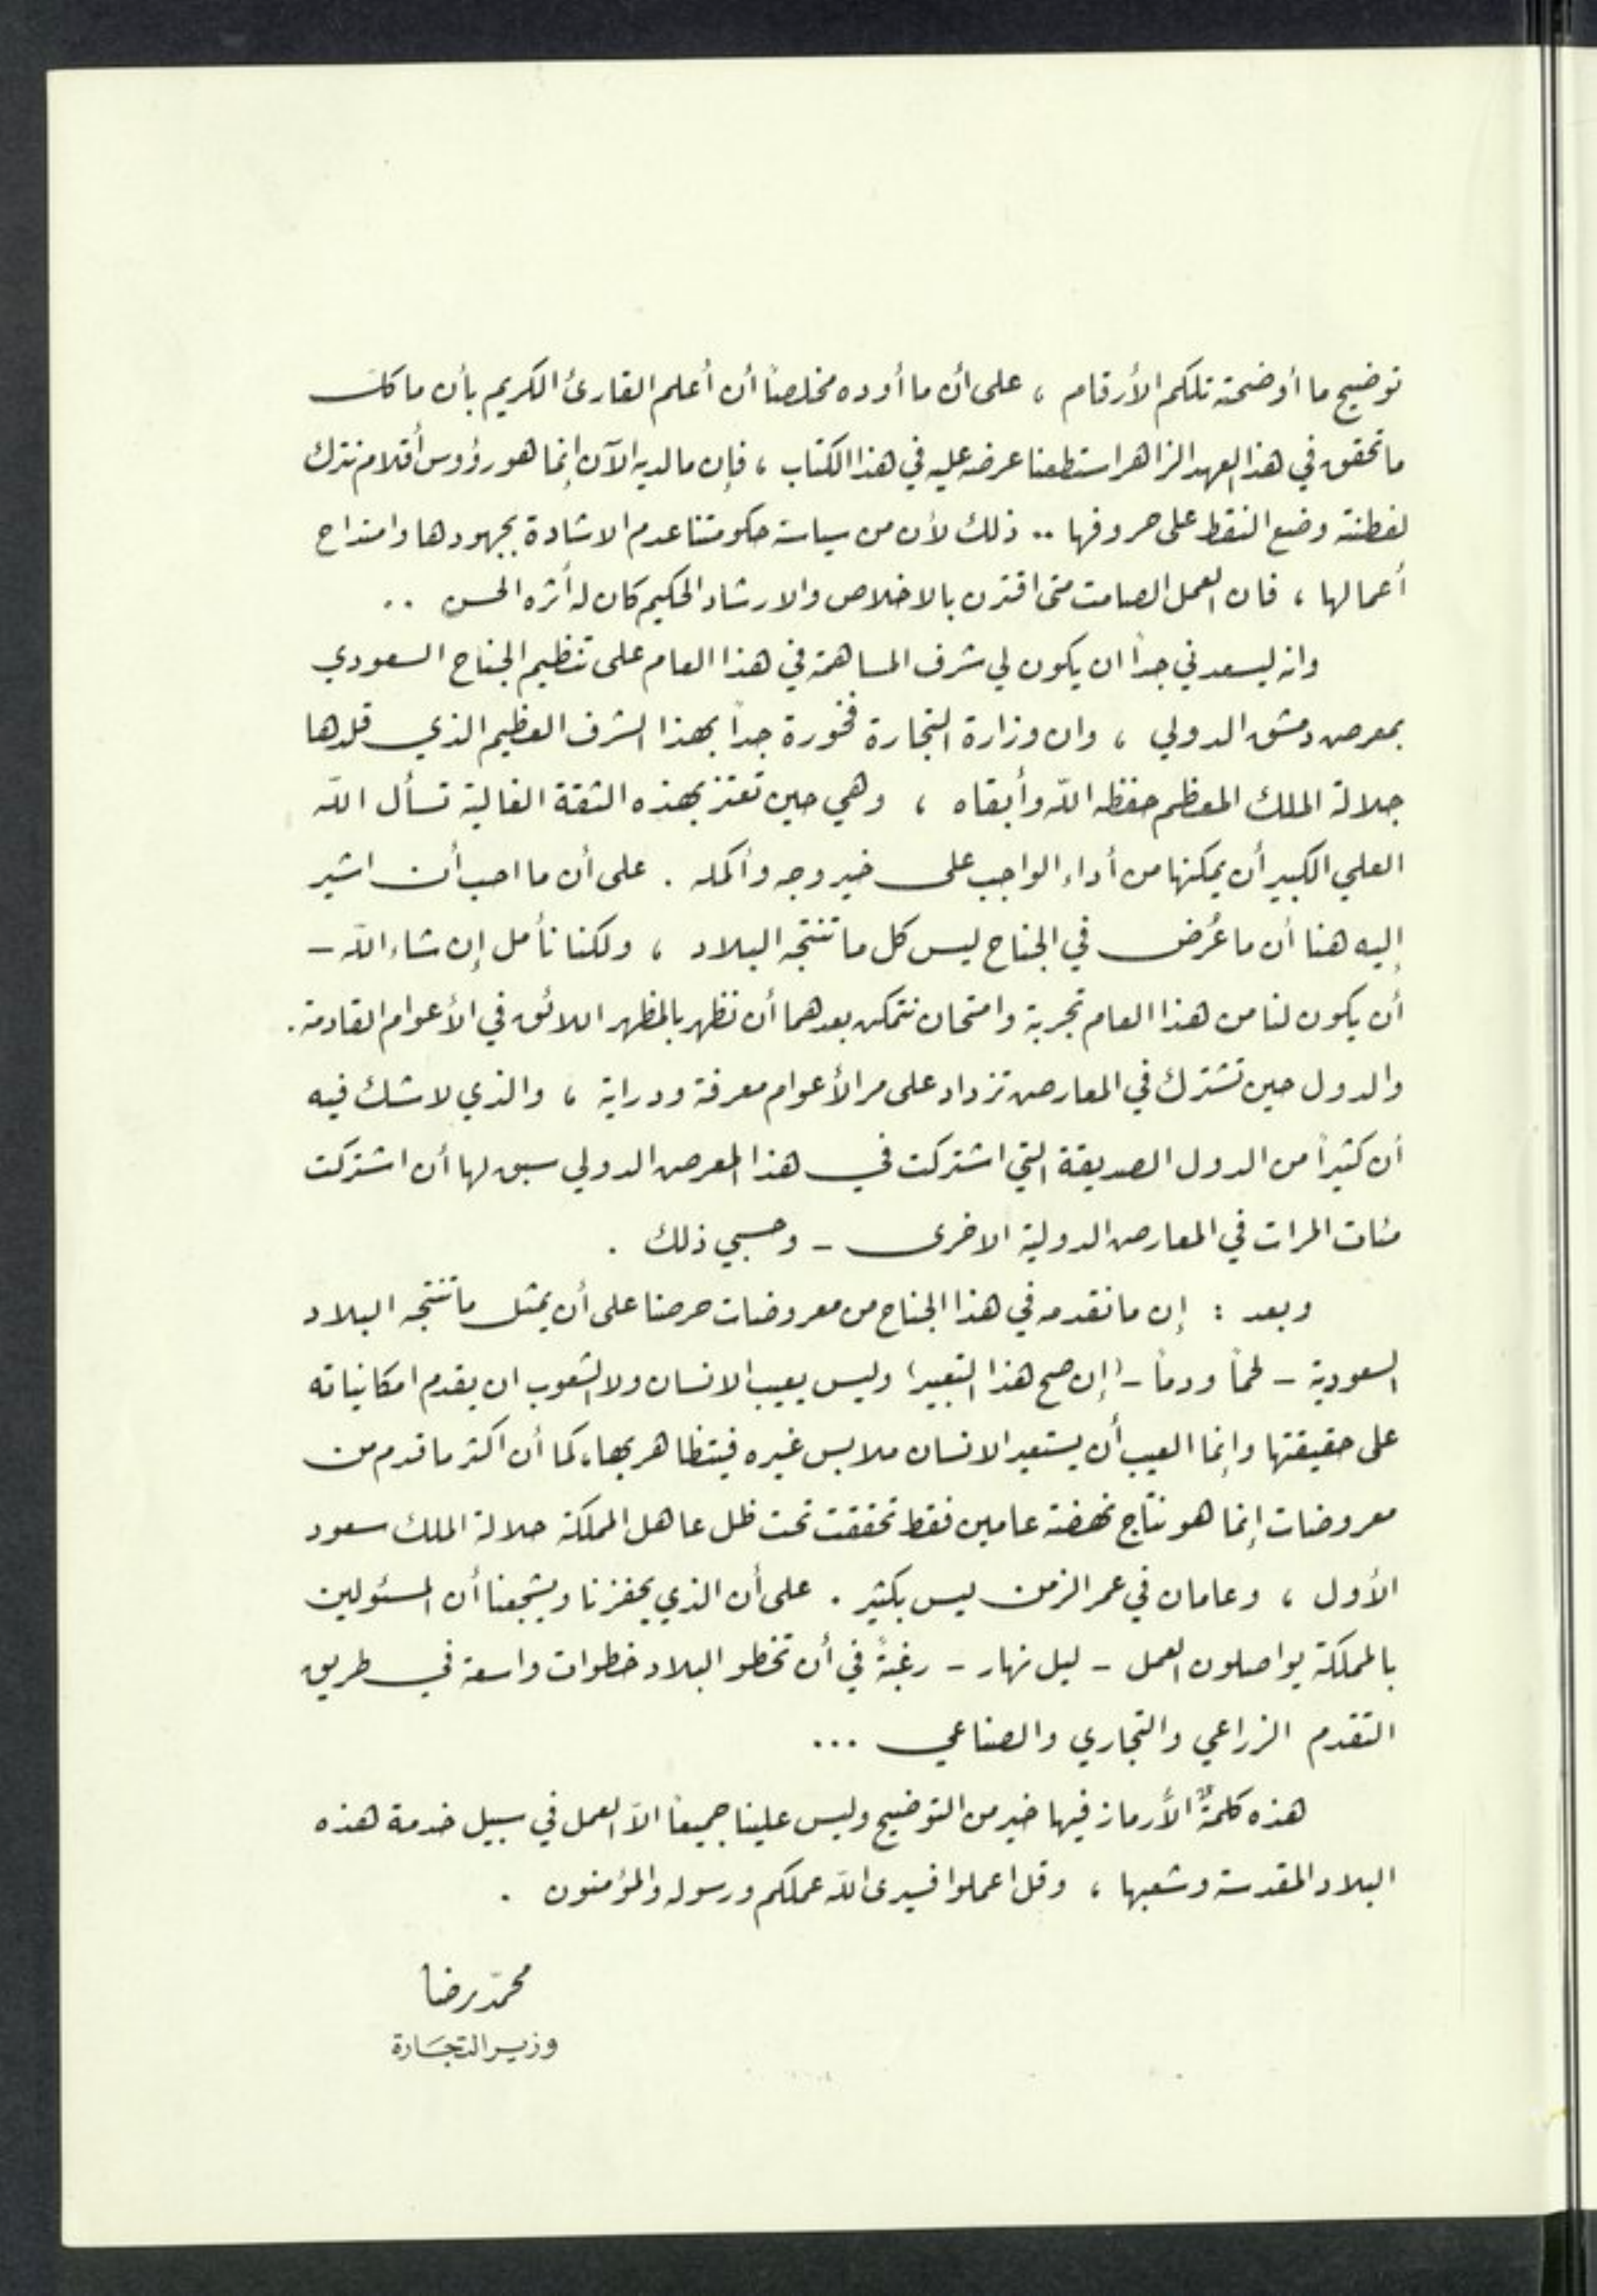 توضيح ما أوضحته تلكم الأرقام ، على أن ما أوده مخلصاً أن أعلم القارئ الكريم بأن ما كل
ما تحقق في هذا العهد الزاهر استطعنا عرضه عليه في هذا الكتاب ، فإن ما لديه الآن إنما هو رؤوس أقلام نترك
لفطنته وضع النقط على حروفها .. ذلك لأن من سياسة حكومتنا عدم الاشادة بجهودها وامتداح
أعمالها ، فان العمل الصامت متى اقترن بالاخلاص والارشاد الحكيم كان له أثره الحسن ..
وانه ليسعدني جداً ان يكون لي شرف المساهمة في هذا العام على تنظيم الجناح السعودي
بمعرض دمشق الدولي ، وان وزارة التجارة فخورة جداً بهذا الشرف العظيم الذي قلدها
جلالة الملك المعظم حفظه الله وأبقاه ، وهي حين تعتز بهذه الثقة الغالية تسأل الله
العلي الكبير أن يمكنها من أداء الواجب على خير وجه وأكمله . على أن ما احب أن اشير
إليه هنا أن ما عُرض في الجناح ليس كل ما تنتجه البلاد ، ولكنا نأمل إن شاء الله –
أن يكون لنا من هذا العام تجربة وامتحان نتمكن بعدهما أن نظهر بالمظهر اللائق في الأعوام القادمة .
والدول حين تشترك في المعارض تزداد على مر الأعوام معرفة ودراية ، والذي لا شك فيه
أن كثيراً من الدول الصديقة التي اشتركت في هذا المعرض الدولي سبق لها أن اشتركت
مئات المرات في المعارض الدولية الاخرى – وحسبي ذلك .
وبعد : إن ما نقدمه في هذا الجناح من معروضات حرصنا على أن يمثل ما تنتجه البلاد
السعودية – لحماً ودماً – ( إن صح هذا التعبير ) وليس يعيب الانسان ولا الشعوب ان يقدم امكانياته
على حقيقتها وإنما العيب أن يستعير الانسان ملابس غيره فيتظاهر بها ، كما أن اكثر ما قدم من
معروضات إنما هو نتاج نهضة عامين فقط تحققت تحت ظل عاهل المملكة جلالة الملك سعود
الأول ، وعامان في عمر الزمن ليس بكثير . على أن الذي يحفزنا ويشجعنا أن المسئولين
بالمملكة يواصلون العمل – ليل نهار – رغبةً في أن تخطو البلاد خطوات واسعة في طريق
التقدم الزراعي والتجاري والصناعي ...
هذه كلمةٌ الأرماز فيها خير من التوضيح وليس علينا جميعاً الاّ العمل في سبيل خدمة هذه
البلاد المقدسة وشعبها ، وقل اعملوا فسيرى الله عملكم ورسوله والمؤمنون .
محمّد رضا
وزير التجارة